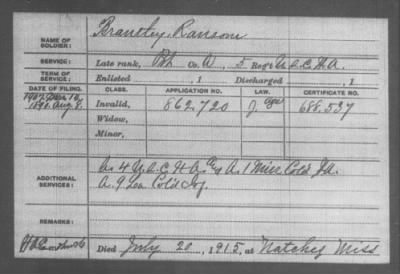 NAME OF SOLDIER: Brantley, Ransom
SERVICE: Late rank, Pvt Co. A, 5 Reg't U.S.C.H.A.
TERM OF SERVICE: Enlisted , 1 Discharged , 1
DATE OF FILING. CLASS. APPLICATION NO. LAW. CERTIFICATE NO.
1890. Aug. 8. Invalid, 862.720 688.537
Widow,
Minor,
ADDITIONAL SERVICES: A. 4 U.S.C.H.A. A. 1 Miss. Col'd
A. 9 La. Col'd Inf.
REMARKS:
Died July 20, 1915, at Natchez Miss